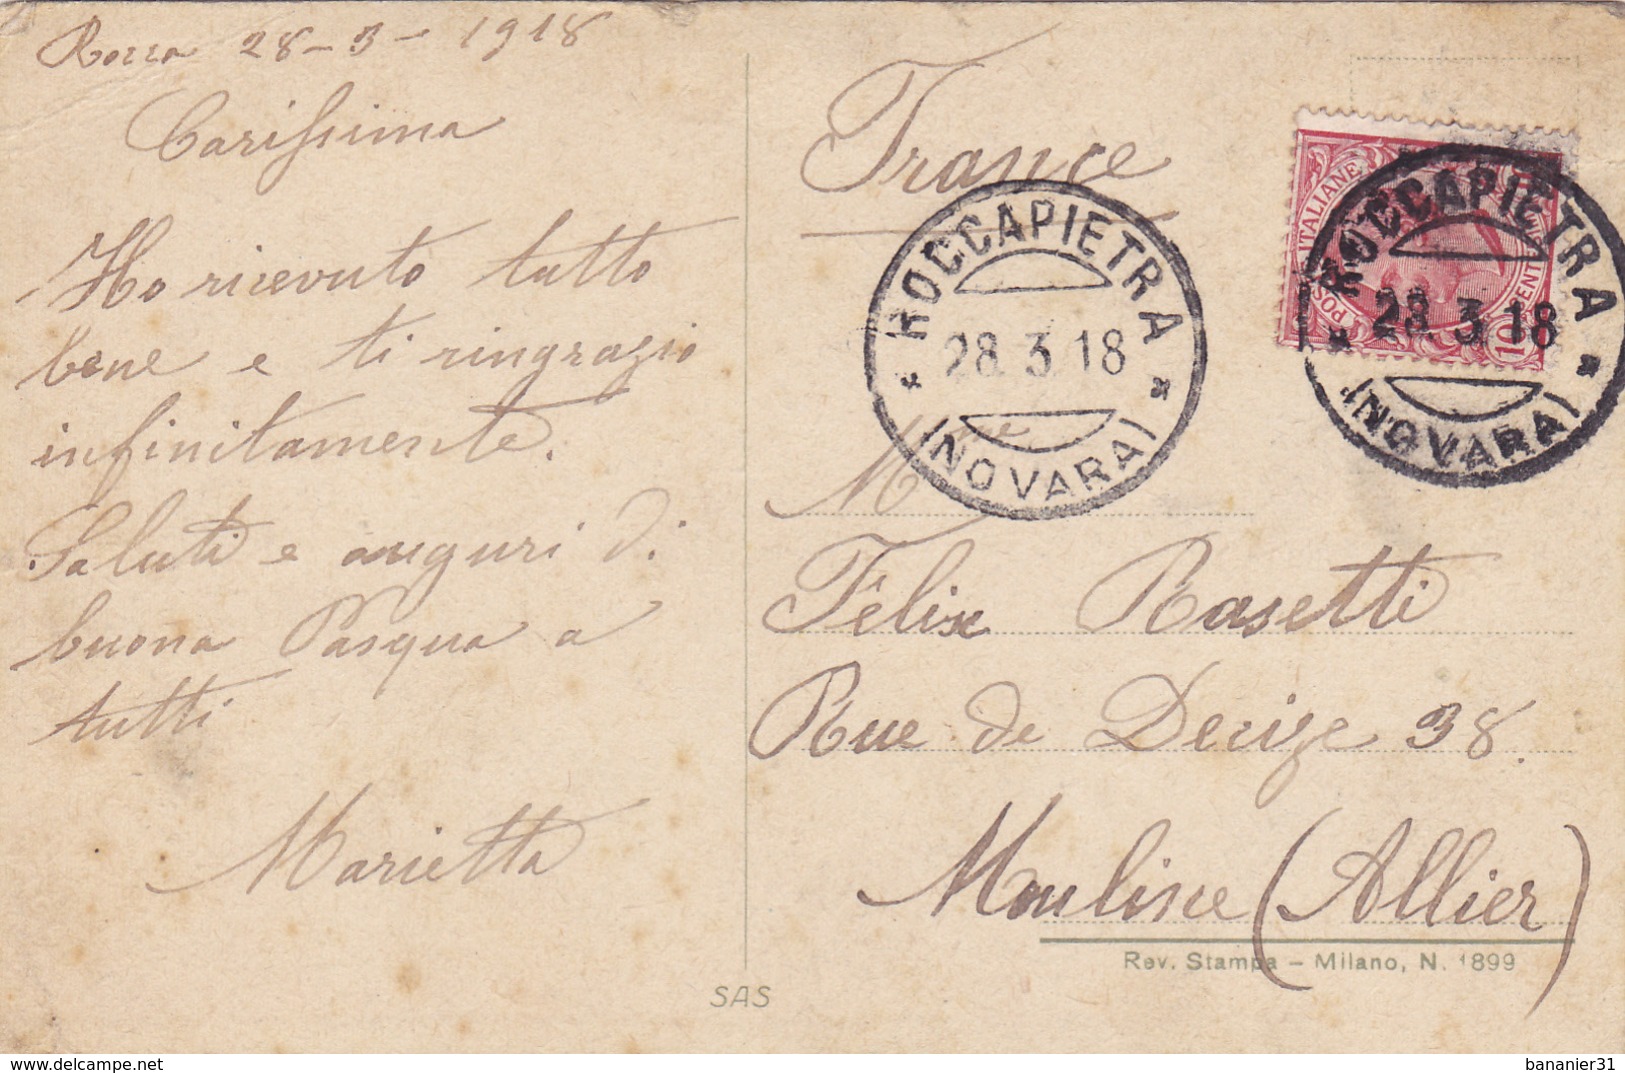 Rocca 28-3-1918
Carissima
Ho ricevuto tutto
bene e ti ringrazio
infinitamente.
Saluti e auguri di
buona Pasqua a
tutti
Marietta
France
ROCCAPIETRA
28.3.18
(NOVARA)
POSTE ITALIANE
CENT 10
ROCCAPIETRA
28.3.18
(NOVARA)
Mme
Félix Rasetti
Rue de Decize 38.
Mouline (Allier)
Rev. Stampa – Milano, N. 1899
SAS
www.delcampe.net
bananier31